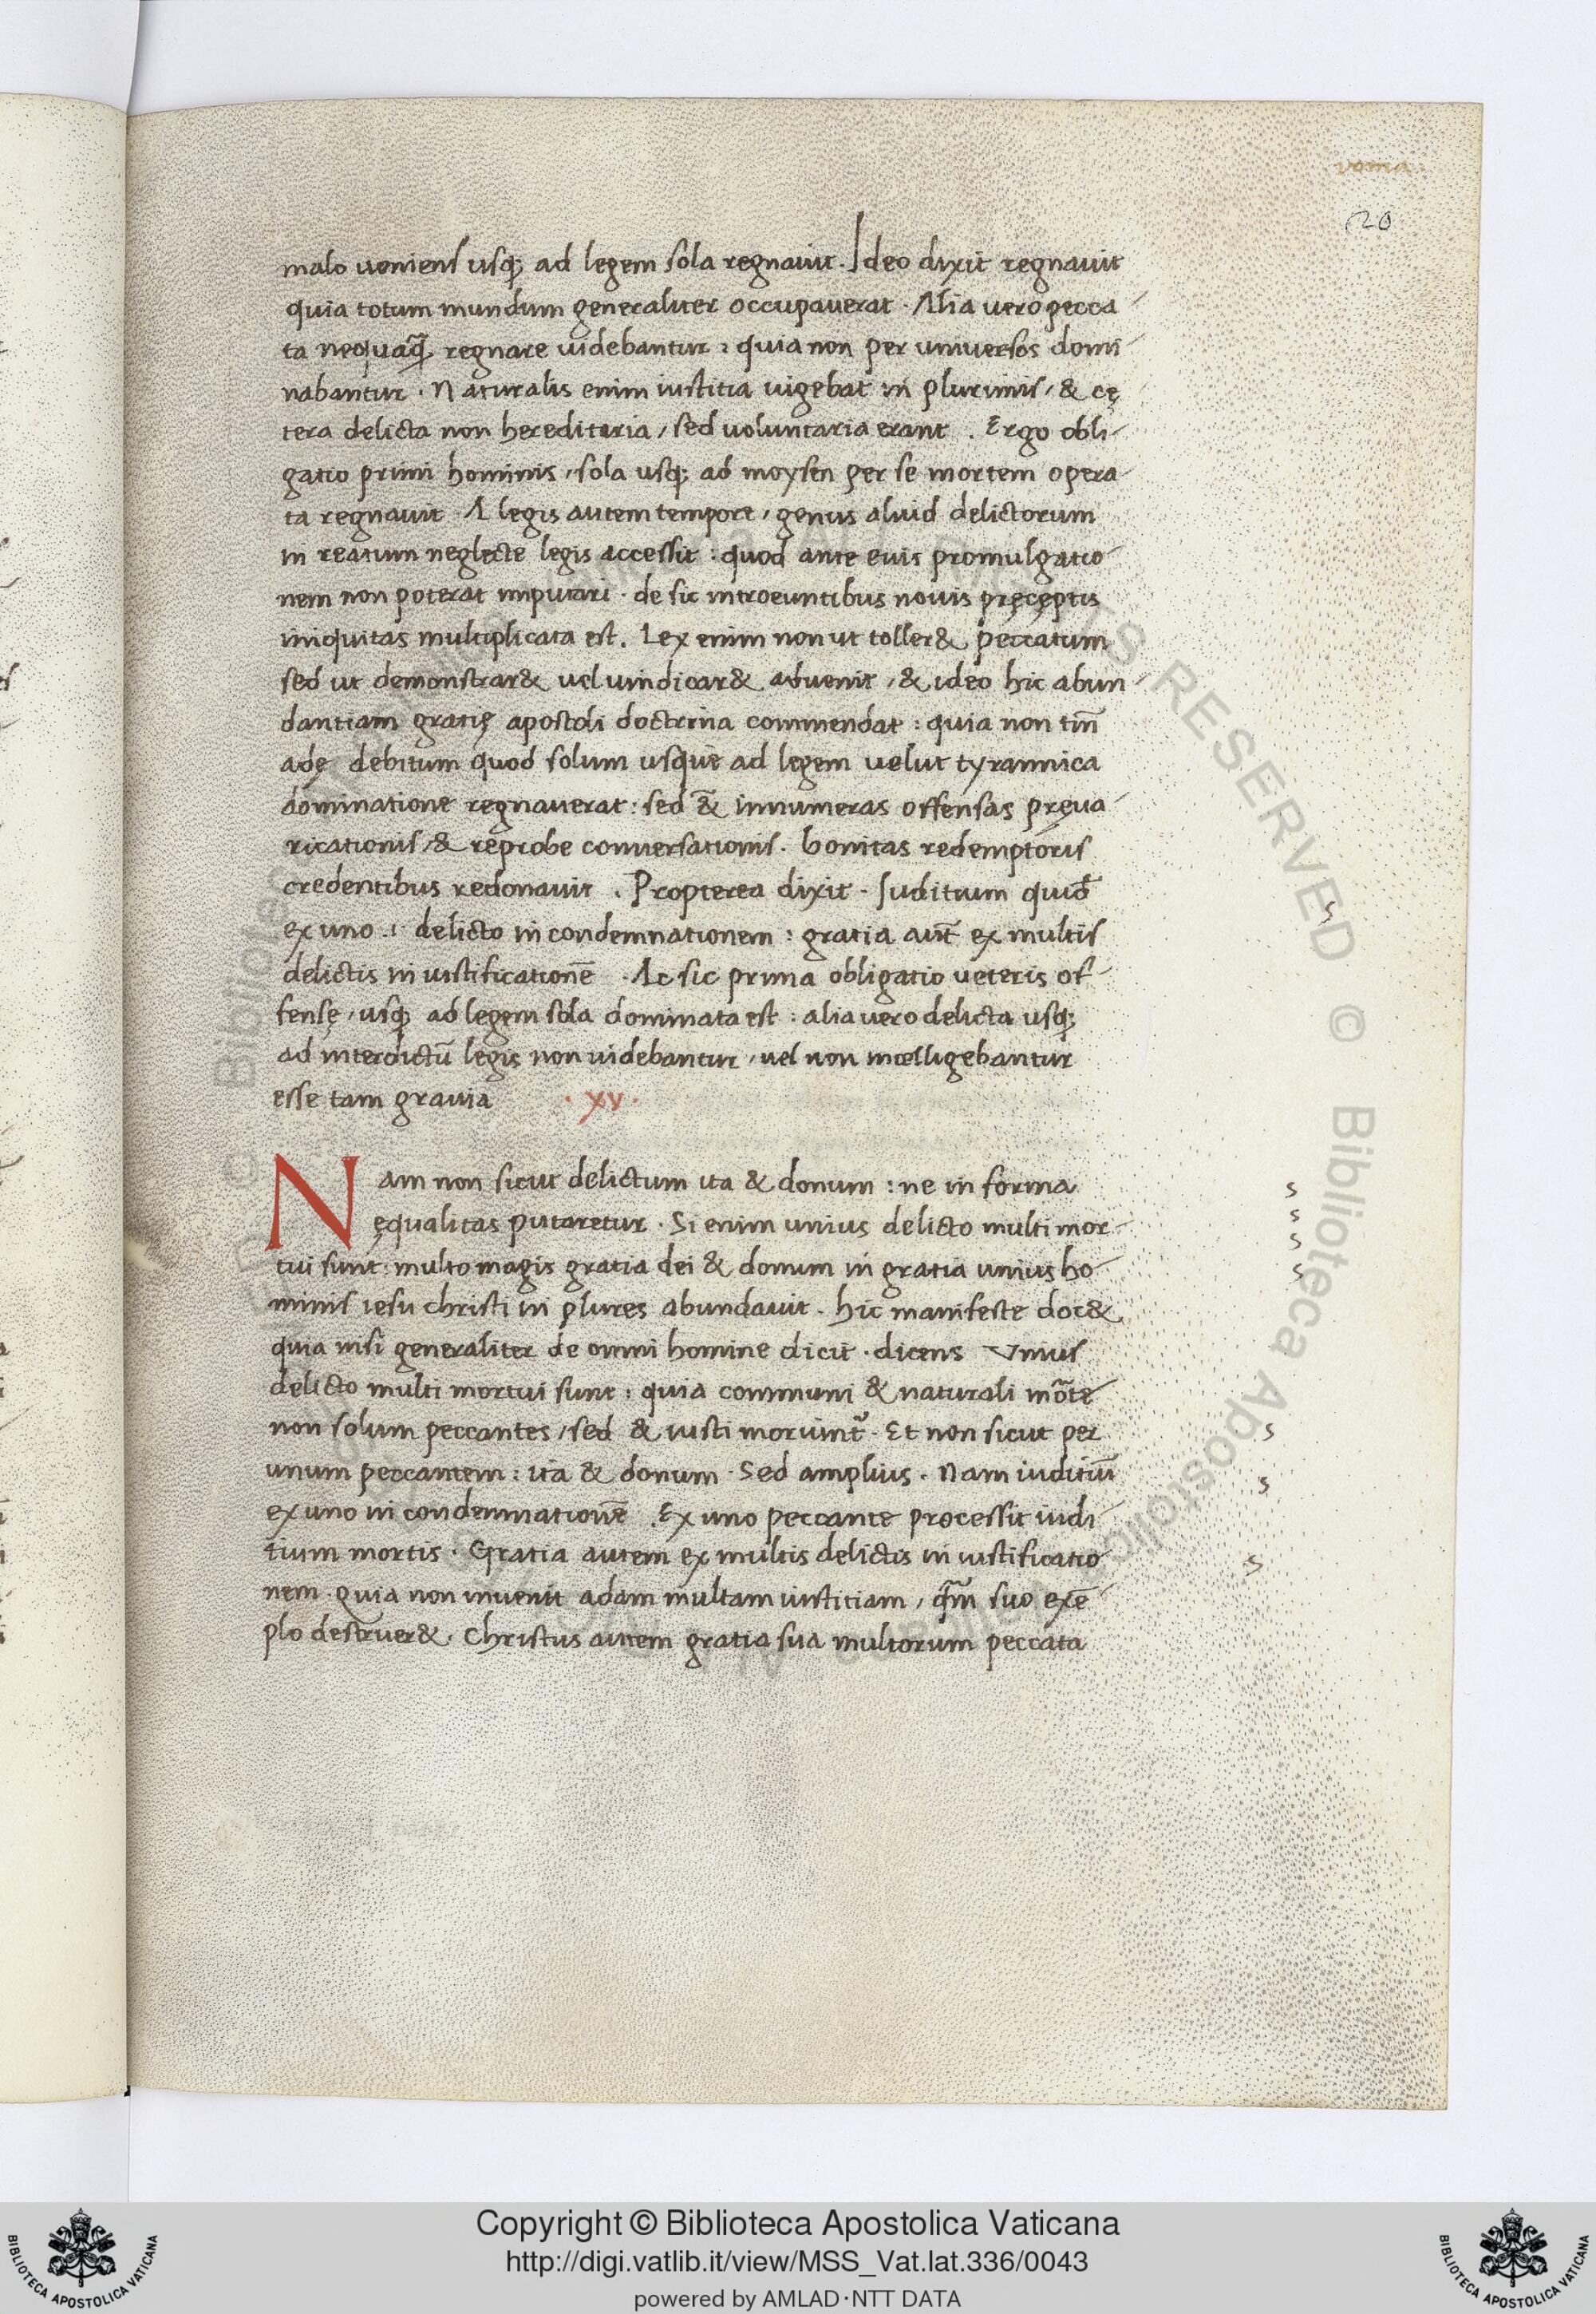 roma.
20
malo ueniens usq; ad legem sola regnauit. Ideo dixit regnauit
quia totum mundum generaliter occupauerat. Alia uero pecca
ta nequaq̃ regnare uidebantur: quia non per uniuersos domi
nabantur. Naturalis enim iustitia uigebat in plurimis / & cę
tera delicta non hereditaria / sed uoluntaria erant. Ergo obli
gatio primi hominis / sola usq; ad moysen per se mortem opera
ta regnauit. A legis autem tempore / genus aliud delictorum
in reatum neglecte legis accessit: quod ante euis promulgatio
nem non poterat imputari. de sic introeuntibus nouis pręcęptis
iniquitas multiplicata est. Lex enim non ut toller& peccatum
sed ut demonstrar& uel uindicar& aduenit / & ideo hic abun
dantiam gratię apostoli doctrina commendat: quia non tm̄
adę debitum quod solum usque ad legem uelut tyrannica
dominatione regnauerat: sed &̃ innumeras offensas pręua
ricationis / & reprobe conuersationis. bonitas redemptoris
credentibus redonauit. Propterea dixit. Iuditium quid̃
ex uno .i. delicto in condemnationem: gratia aut̃ ex multis
delictis in iustificationē. Ac sic prima obligatio ueteris of
fensę / usq; ad legem sola dominata est: alia uero delicta usq;
ad interdictū legis non uidebantur / uel non intelligebantur
esse tam grauia .xv.
Nam non sicut delictum ita & donum: ne in forma
ęqualitas putaretur. Si enim unius delicto multi mor
tui sunt: multo magis gratia dei & donum in gratia unius ho
minis iesu christi in plures abundauit. hic manifeste doc&
quia nisi generaliter de omni homine dicit. dicens Vnius
delicto multi mortui sunt: quia communi & naturali mõte
non solum peccantes / sed & iusti moriunt̃. Et non sicut per
unum peccantem: ita & donum. Sed amplius. Nam iuditiū
ex uno in condemnationē. Ex uno peccante processit iudi
tium mortis. Gratia autem ex multis delictis in iustificatio
nem. quia non inuenit adam multam iustitiam, q̃m suo exē
plo destruer&. Christus autem gratia sua multorum peccata
Copyright © Biblioteca Apostolica Vaticana
http://digi.vatlib.it/view/MSS_Vat.lat.336/0043
powered by AMLAD·NTT DATA